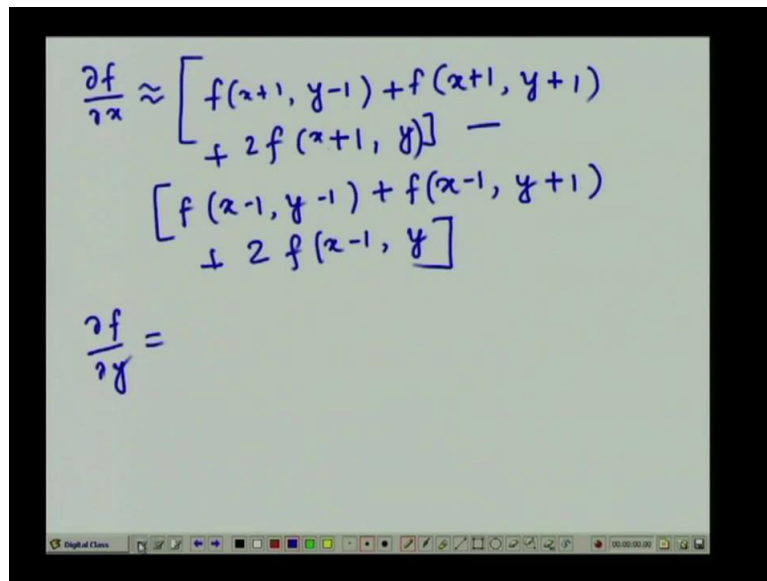 ∂f/∂x ≈ [f(x+1, y-1) + f(x+1, y+1)
+ 2f(x+1, y)] —
[f(x-1, y-1) + f(x-1, y+1)
+ 2f(x-1, y]
∂f/∂y =
Digital Class 00:00:00.00